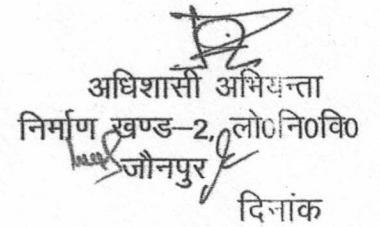 अधिशासी अभियन्ता
निर्माण खण्ड–2, लो0नि0वि0
जौनपुर
दिनांक